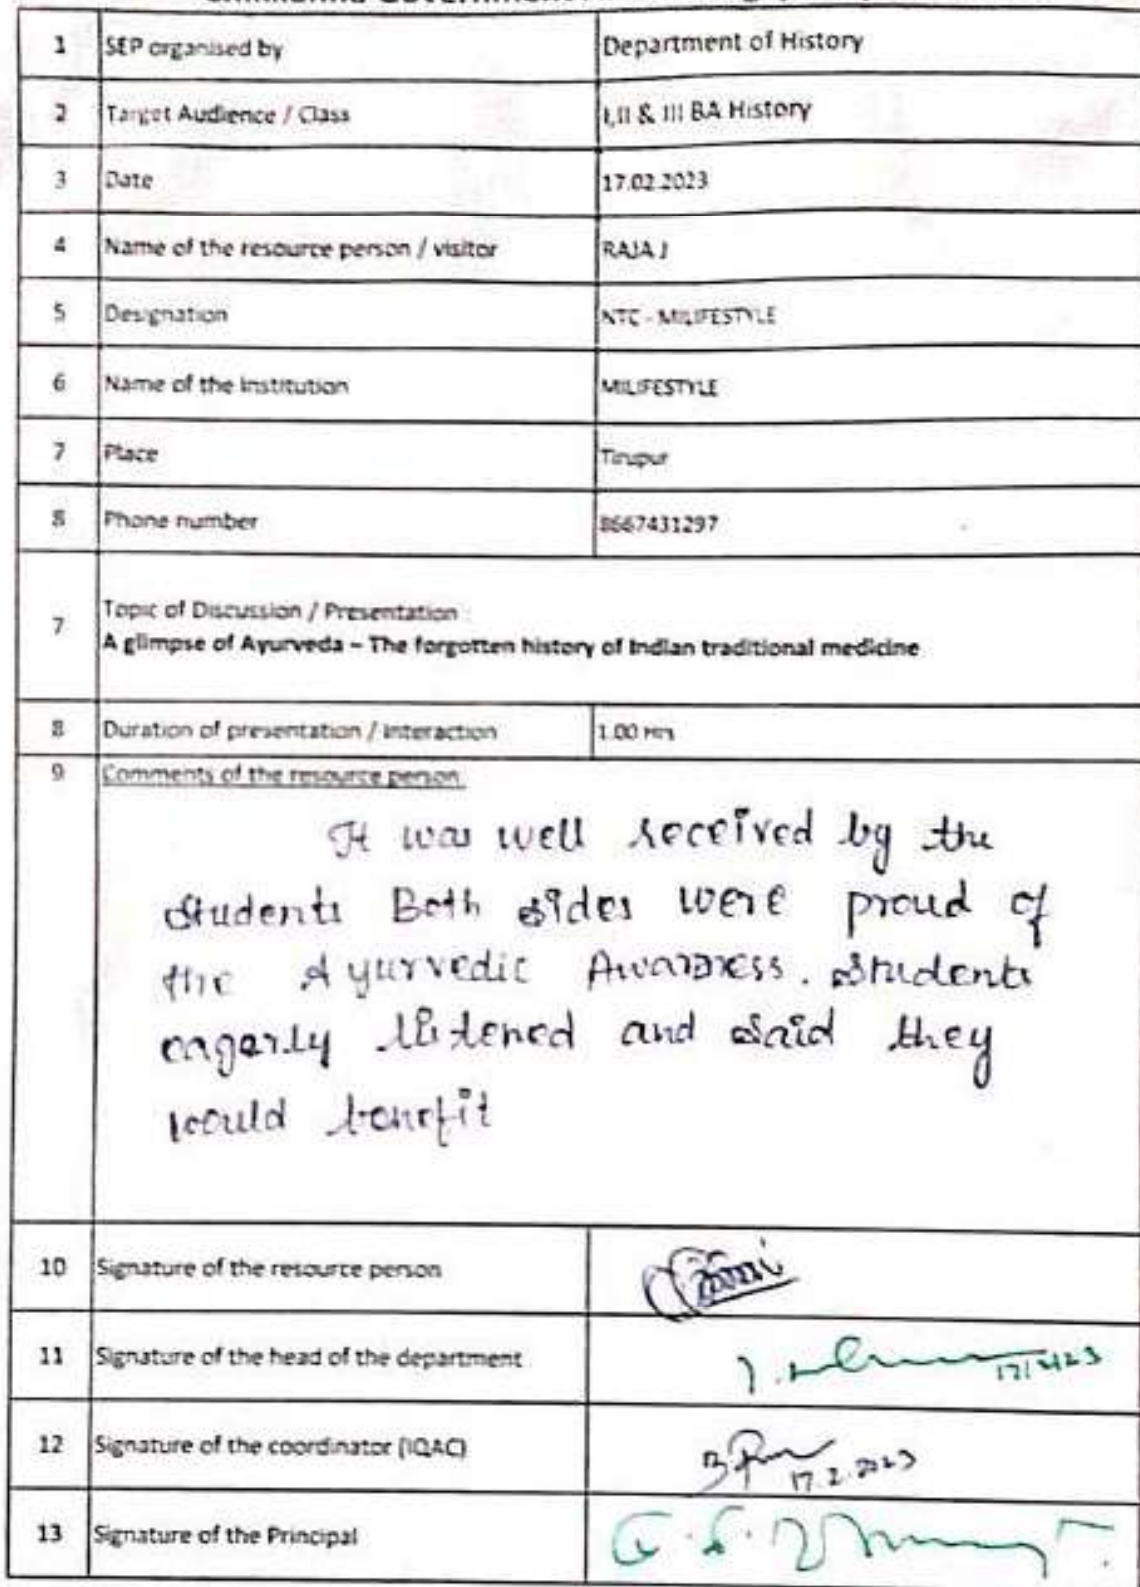 1 SEP organised by Department of History
2 Target Audience / Class I,II & III BA History
3 Date 17.02.2023
4 Name of the resource person / visitor RAJA J
5 Designation NTC - MILIFESTYLE
6 Name of the Institution MILIFESTYLE
7 Place Tirupur
8 Phone number 8667431297
7 Topic of Discussion / Presentation :
A glimpse of Ayurveda – The forgotten history of Indian traditional medicine
8 Duration of presentation / Interaction 1.00 Hrs
9 Comments of the resource person
It was well received by the
students Both sides were proud of
the Ayurvedic Awarness. Students
eagerly listened and said they
would benefit
10 Signature of the resource person
11 Signature of the head of the department
12 Signature of the coordinator (IQAC) 17.2.2023
13 Signature of the Principal